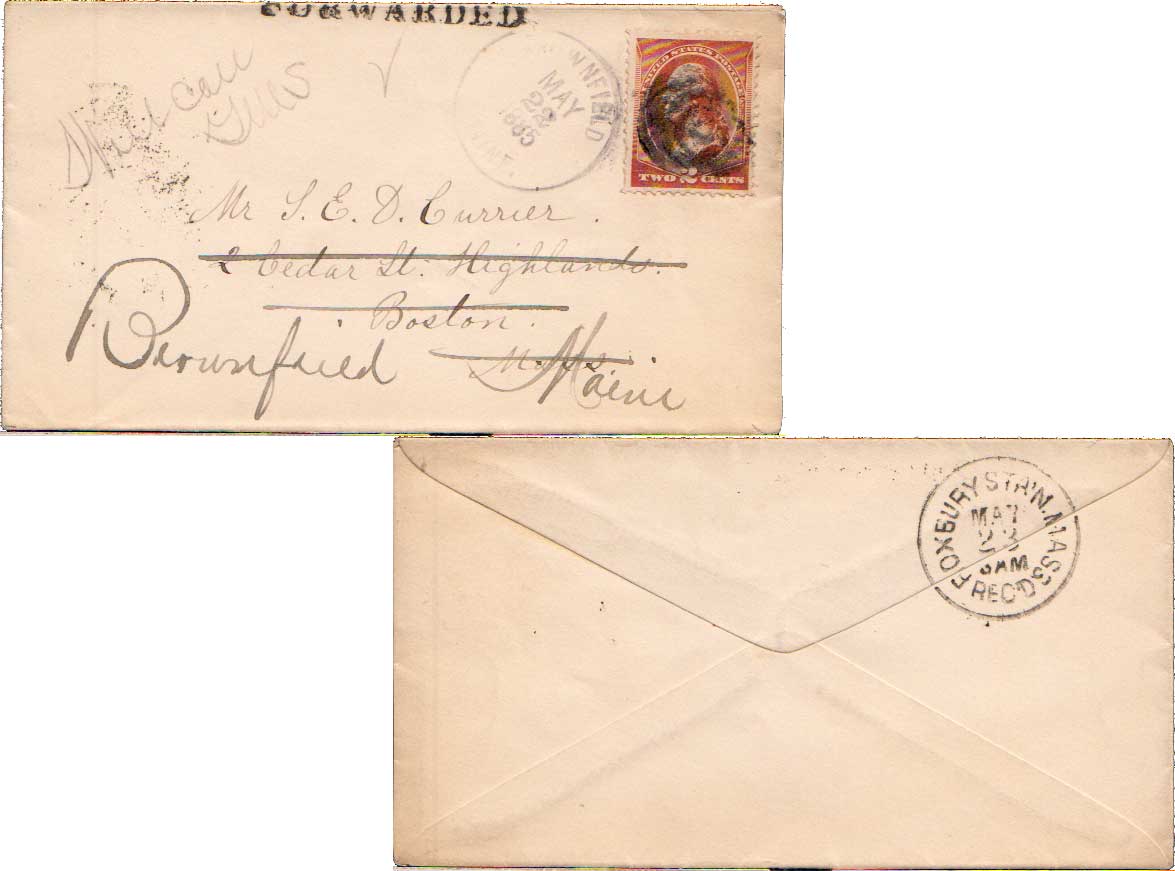 FORWARDED
Will call
BROWNFIELD
MAY
22
1885
UNITED STATES POSTAGE
TWO 2 CENTS
Mr S. E. D. Currier.
2 Cedar St. Highlands.
Boston.
Mass.
Brownfield Maine
ROXBURY STA'N. MASS.
MAY
23
8AM
REC'D